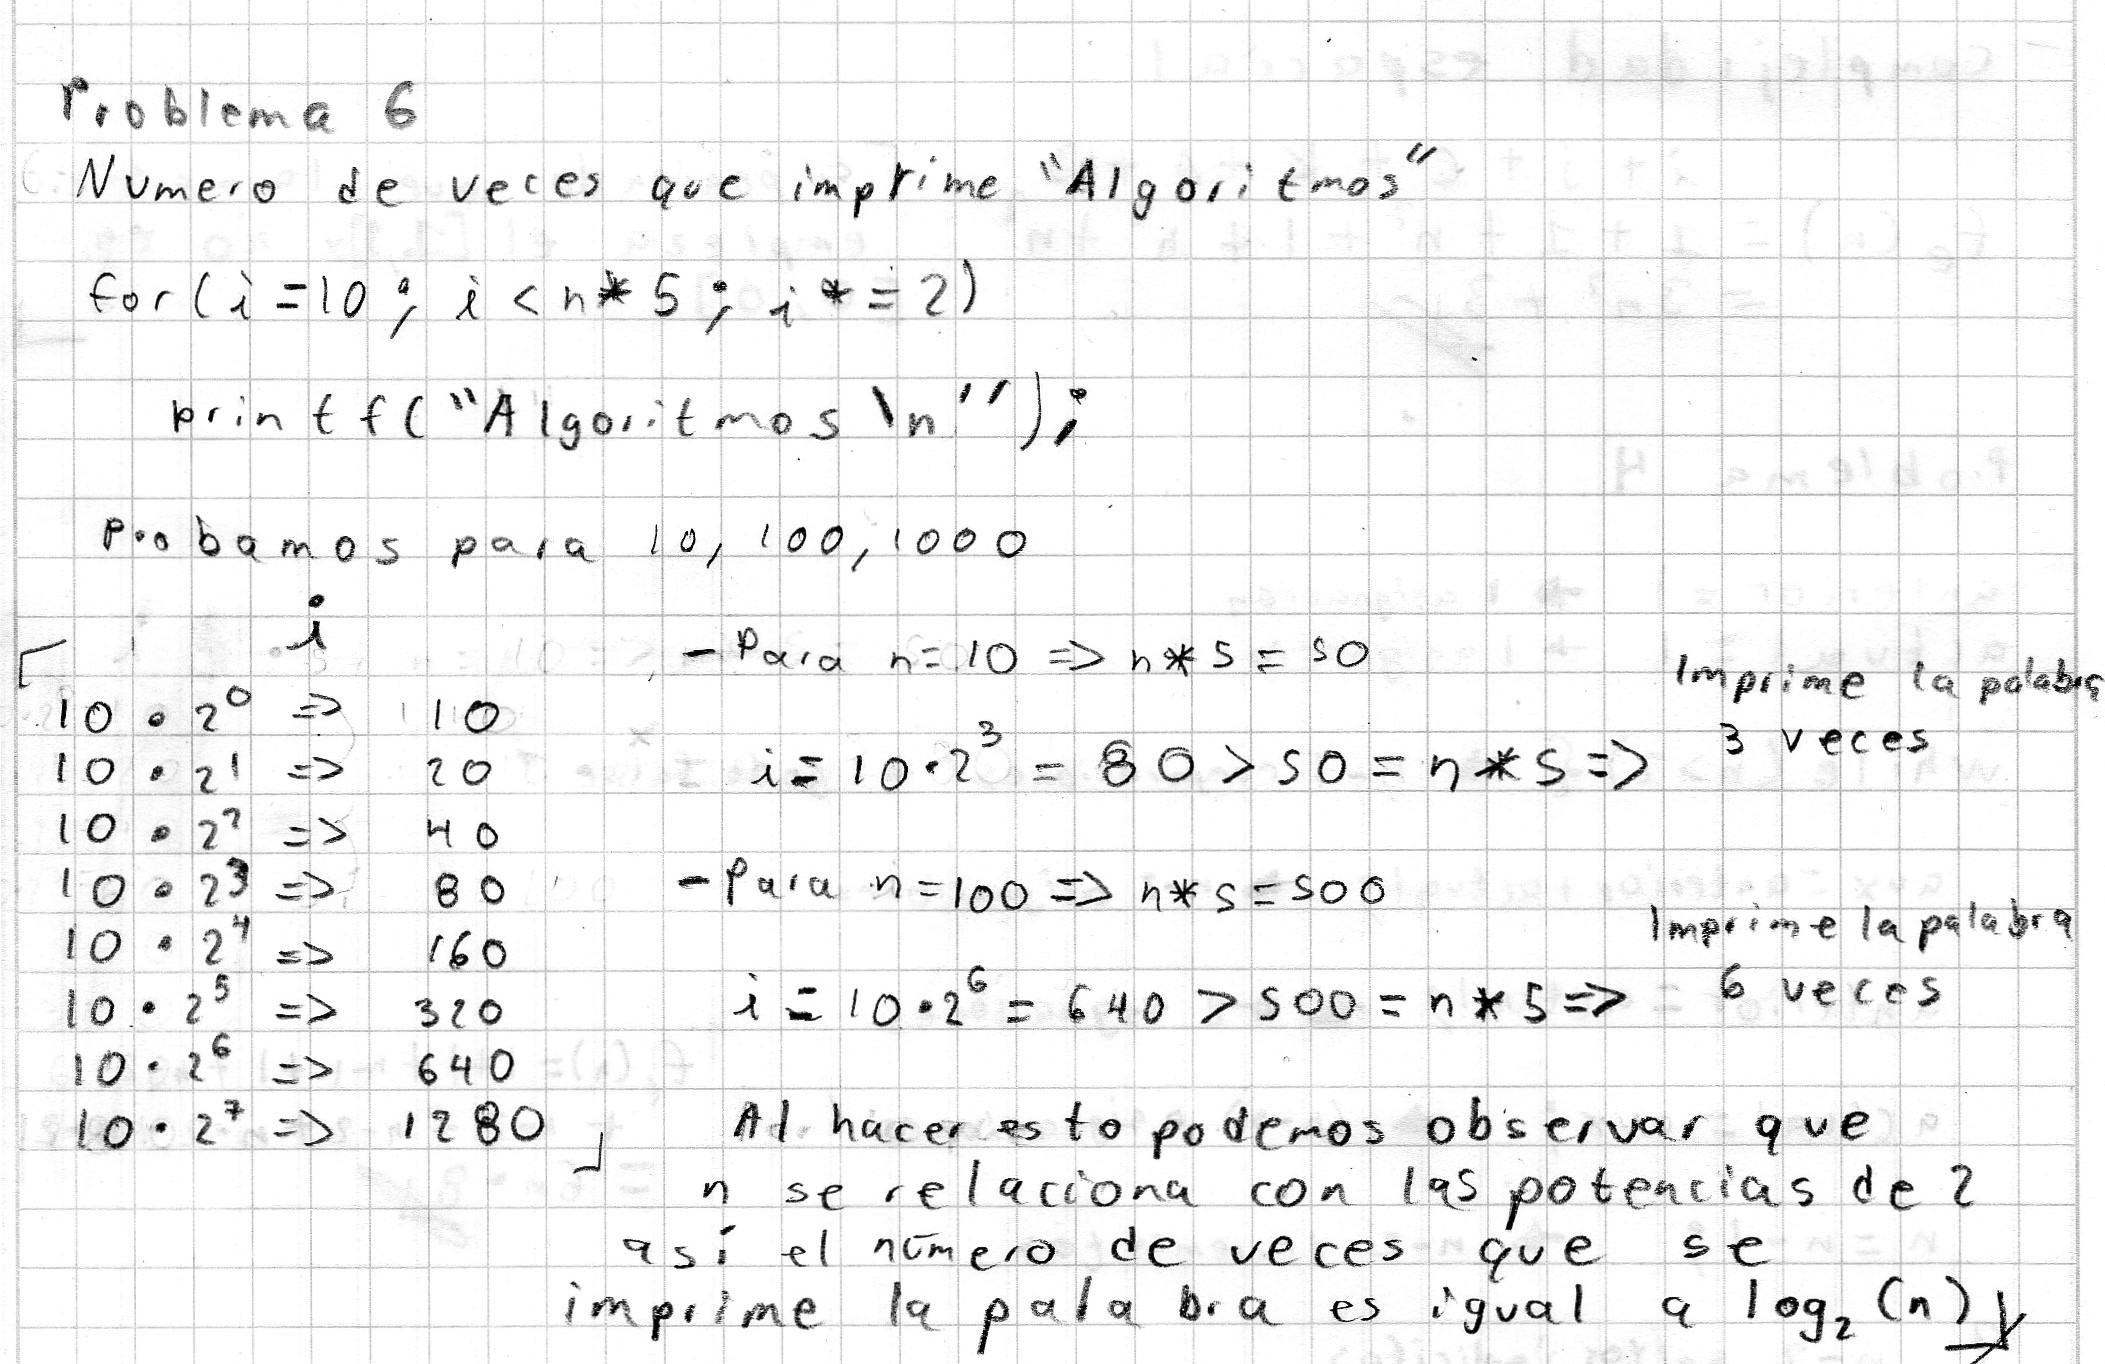 Problema 6
Numero de veces que imprime "Algoritmos"
for(i=10; i<n*5; i*=2)
printf("Algoritmos\n");
Probamos para 10, 100, 1000
i
10 · 2⁰ => 10
10 · 2¹ => 20
10 · 2² => 40
10 · 2³ => 80
10 · 2⁴ => 160
10 · 2⁵ => 320
10 · 2⁶ => 640
10 · 2⁷ => 1280
- Para n=10 => n*5=50
i=10·2³ = 80 > 50 = n*5 =>
Imprime la palabra
3 veces
- Para n=100 => n*5=500
i=10·2⁶ = 640 > 500 = n*5 =>
Imprime la palabra
6 veces
Al hacer esto podemos observar que
n se relaciona con las potencias de 2
así el número de veces que se
imprime la palabra es igual a log₂(n)